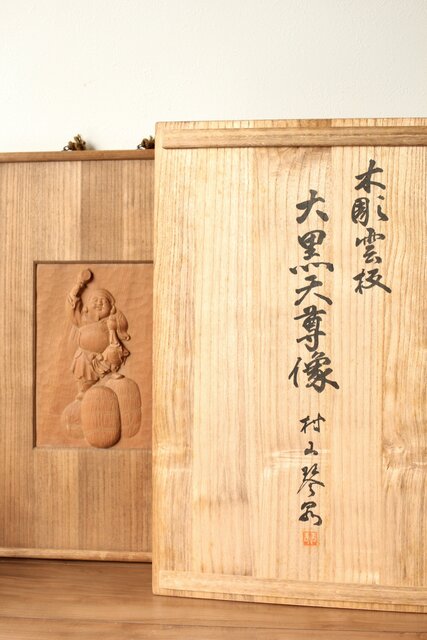 木彫雲板
大黒天尊像
村上琴